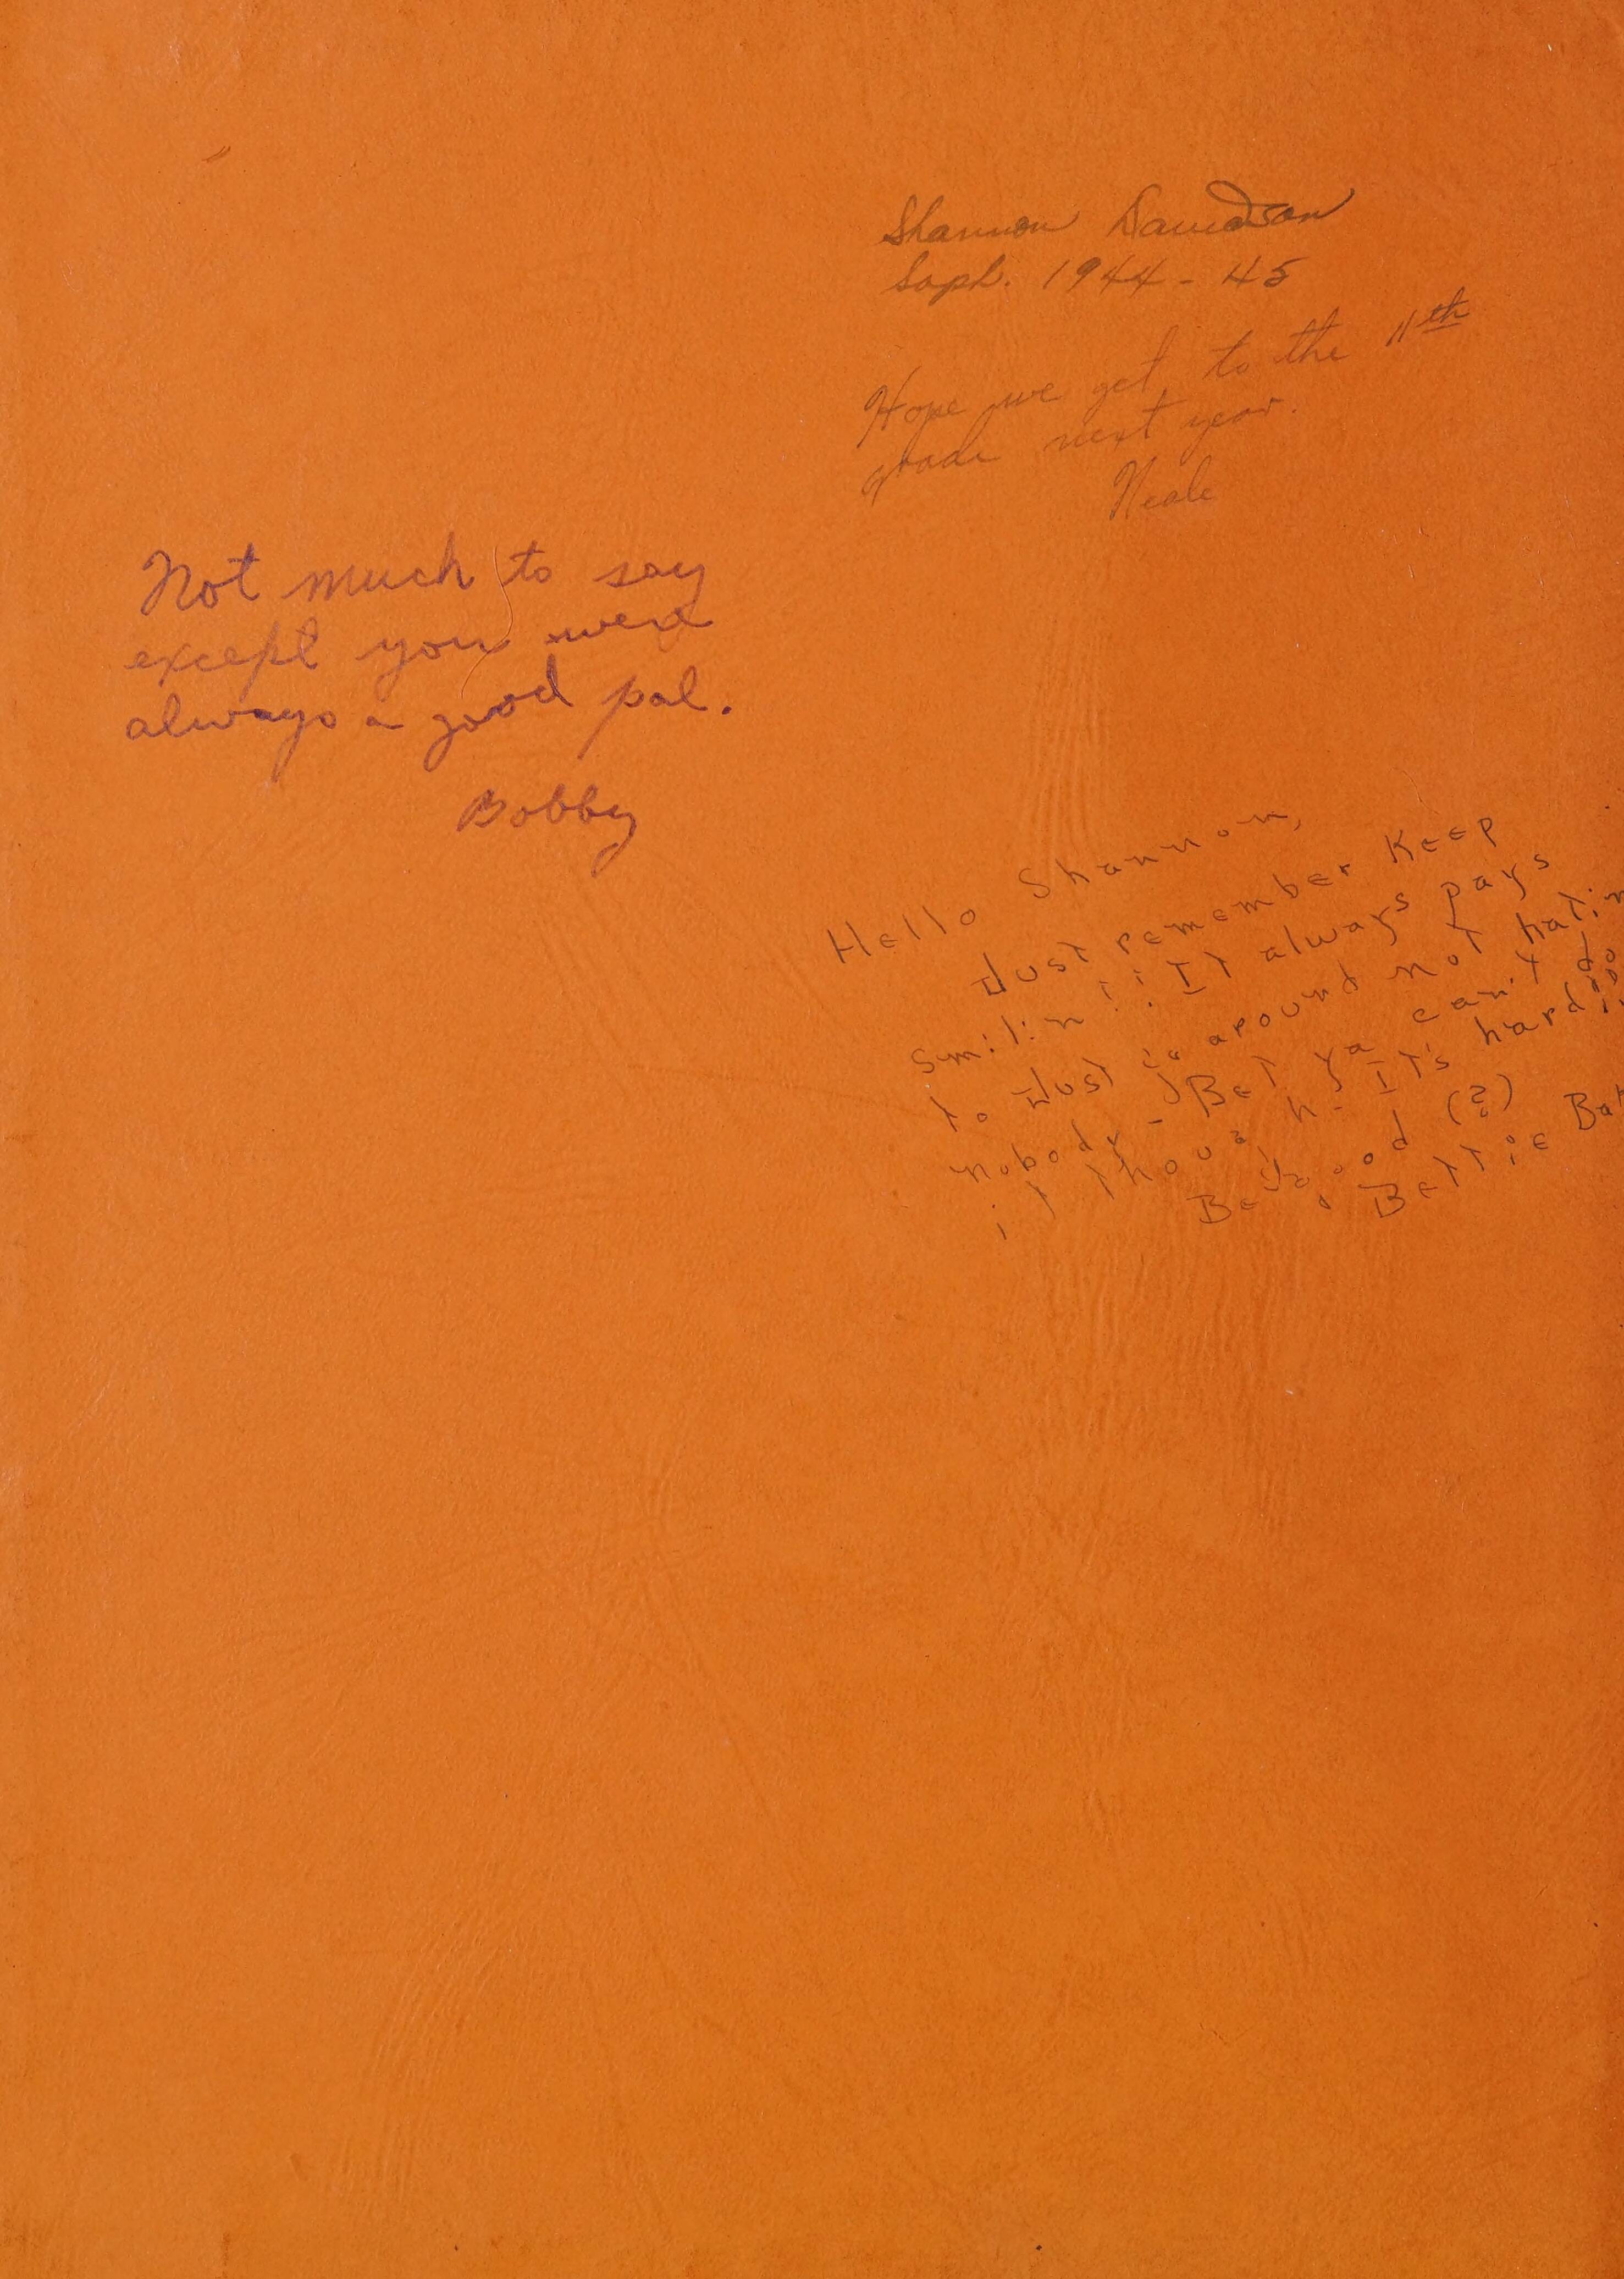 Shannon Davidson
Soph. 1944-45
Hope we get to the 11th
grade next year.
Neale
Not much to say
except you were
always a good pal.
Bobby
Hello Shannon,
Just remember Keep
Smilin!! It always pays
to Just go around not hatin
nobody - Bet ya can't do
it though - It's hard!!
Be good (?)
Bettie